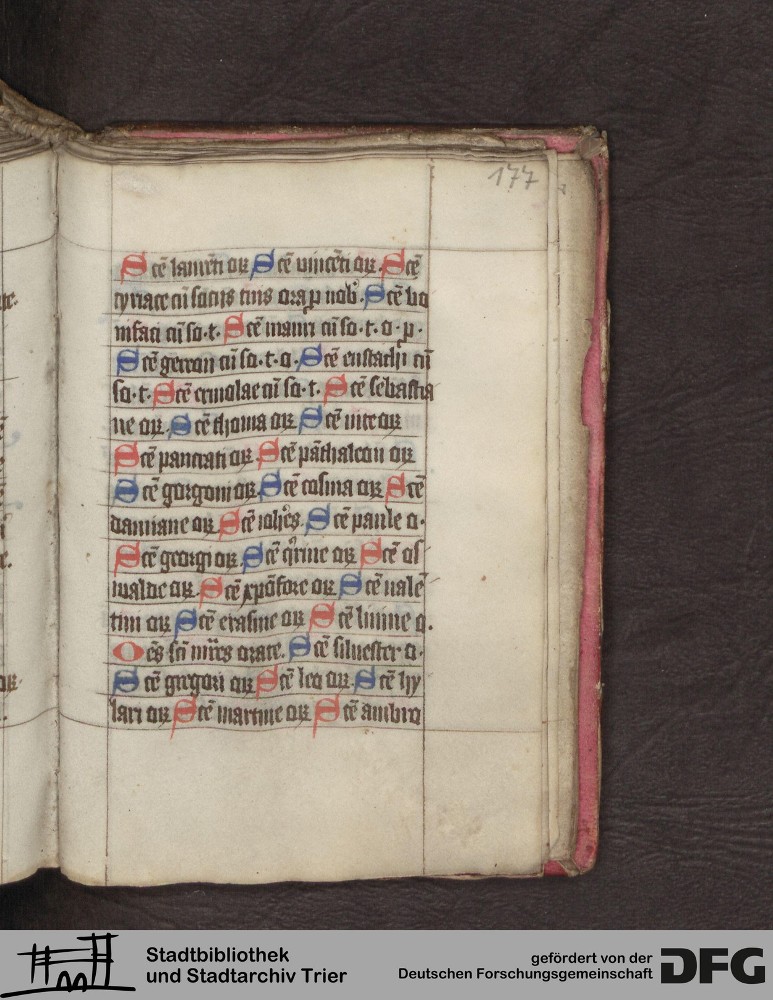 177
Scē laurēti oꝝ Scē uincēti oꝝ. Scē
cyriace cū sociis tuis ora ꝓ nob'. Scē bo
nifaci cū so·t· Scē mauri cū so·t·o·p·
Scē gereon cū so·t·o· Scē eustachi cū
so·t· Scē ermolae cū so·t· Scē sebastia
ne oꝝ. Scē thoma oꝝ Scē uite oꝝ
Scē pancrati oꝝ Scē pāthaleon oꝝ
Scē gorgoni oꝝ. Scē cosma oꝝ Scē
damiane oꝝ Scē ioh̄es. Scē paule o·
Scē georgi oꝝ. Scē q̊rine oꝝ Scē os
walde oꝝ. Scē xpōfore oꝝ Scē ualē
tini oꝝ Scē erasme oꝝ Scē liuine o.
Oēs sc̄i mr̄es orate. Scē siluester o·
Scē gregori oꝝ Scē leo oꝝ. Scē hy
lari oꝝ Scē martine oꝝ Scē ambro
Stadtbibliothek
und Stadtarchiv Trier
gefördert von der
Deutschen Forschungsgemeinschaft
DFG